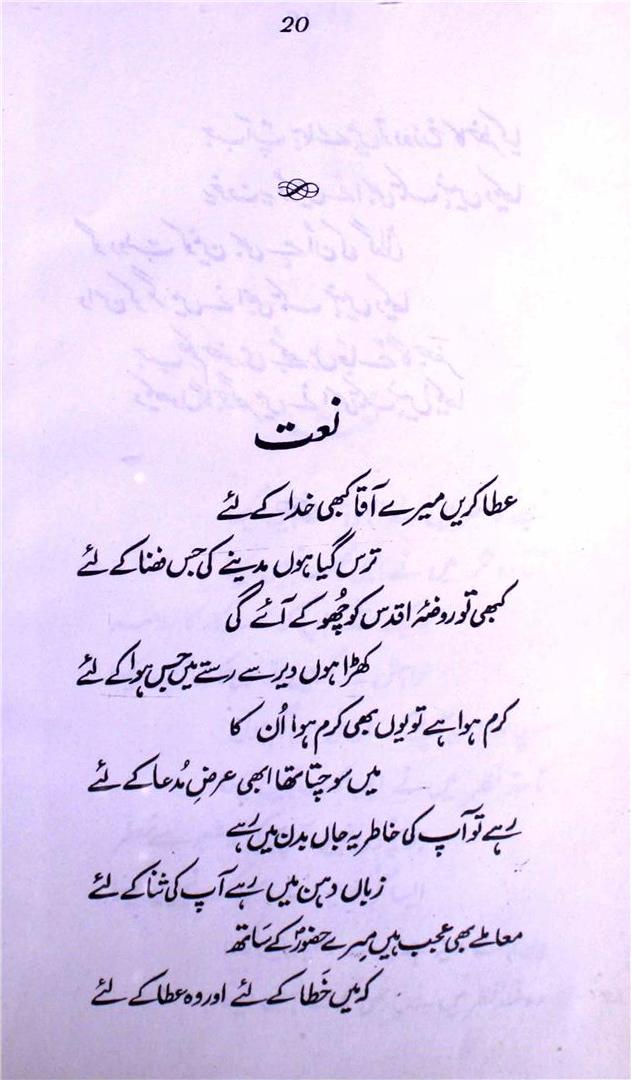 20
نعت
عطا کریں میرے آقا کبھی خدا کے لئے
ترس گیا ہوں مدینے کی جس فضا کے لئے
کبھی تو روضۂ اقدس کو چُھو کے آئے گی
کھڑا ہوں دیر سے رستے میں جس ہوا کے لئے
کرم ہوا ہے تو یوں بھی کرم ہوا اُن کا
میں سوچتا تھا ابھی عرضِ مُدعا کے لئے
رہے تو آپ کی خاطر یہ جاں بدن میں رہے
زباں دہن میں رہے آپ کی ثنا کے لئے
معاملے بھی عجب ہیں میرے حضورؐ کے سَاتھ
کہ میں خَطا کے لئے اور وہ عطا کے لئے